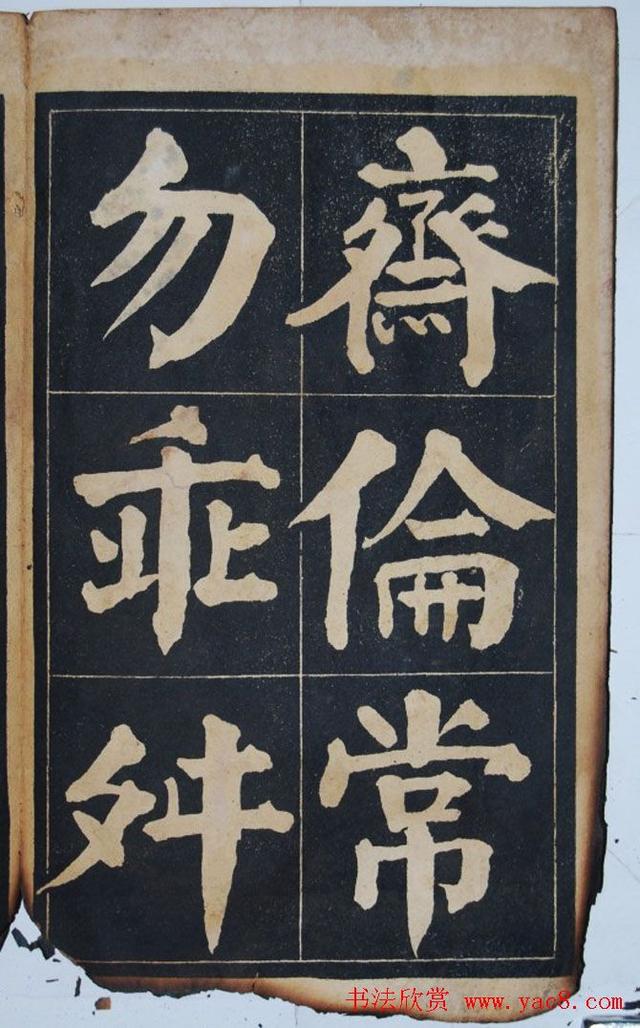 齋倫常
勿乖舛
书法欣赏 www.yac8.com